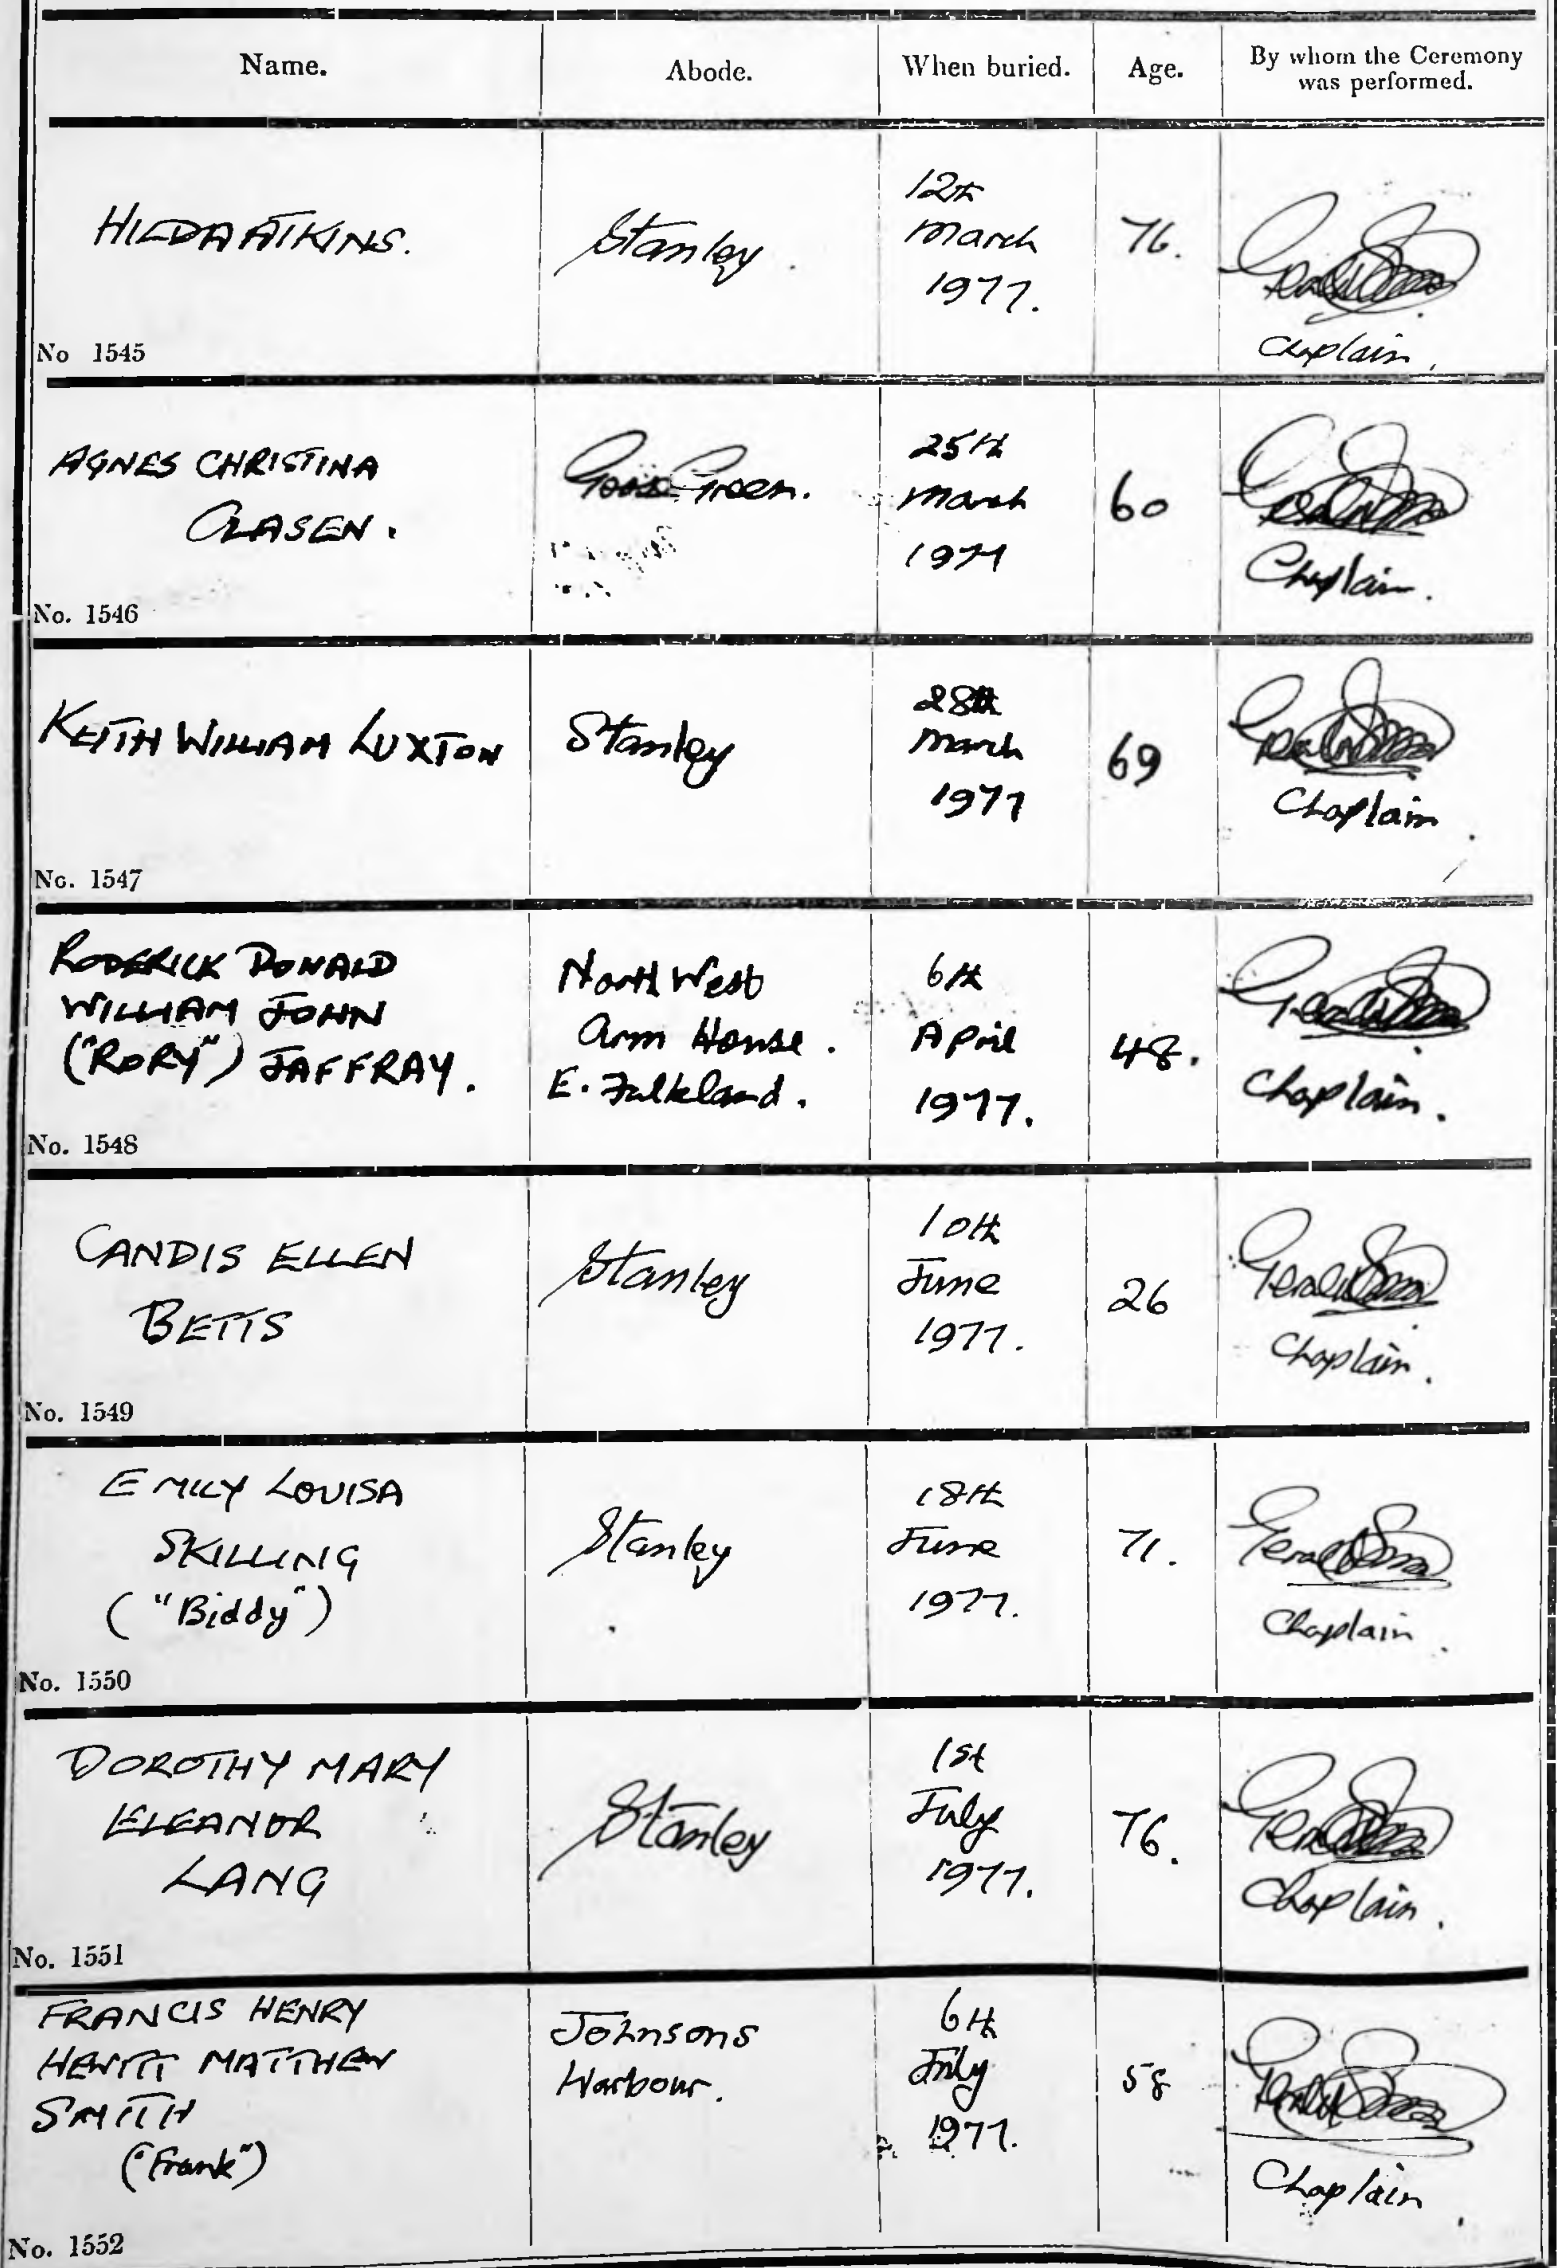 Name. Abode. When buried. Age. By whom the Ceremony
was performed.
HILDA ATKINS. Stanley. 12th
March
1977. 76.
Chaplain.
No 1545
AGNES CHRISTINA
CLASEN. Goose Green. 25th
March
1977 60
Chaplain.
No. 1546
KEITH WILLIAM LUXTON Stanley 28th
March
1977 69
Chaplain
No. 1547
RODERICK DONALD
WILLIAM JOHN
("RORY") JAFFRAY. North West
Arm House.
E. Falkland. 6th
April
1977. 48.
Chaplain.
No. 1548
CANDIS ELLEN
BETTS Stanley 10th
June
1977. 26
Chaplain.
No. 1549
EMILY LOUISA
SKILLING
("Biddy") Stanley 18th
June
1977. 71.
Chaplain.
No. 1550
DOROTHY MARY
ELEANOR
LANG Stanley 1st
July
1977. 76.
Chaplain.
No. 1551
FRANCIS HENRY
HEWITT MATTHEW
SMITH
("Frank") Johnsons
Harbour. 6th
July
1977. 58
Chaplain
No. 1552